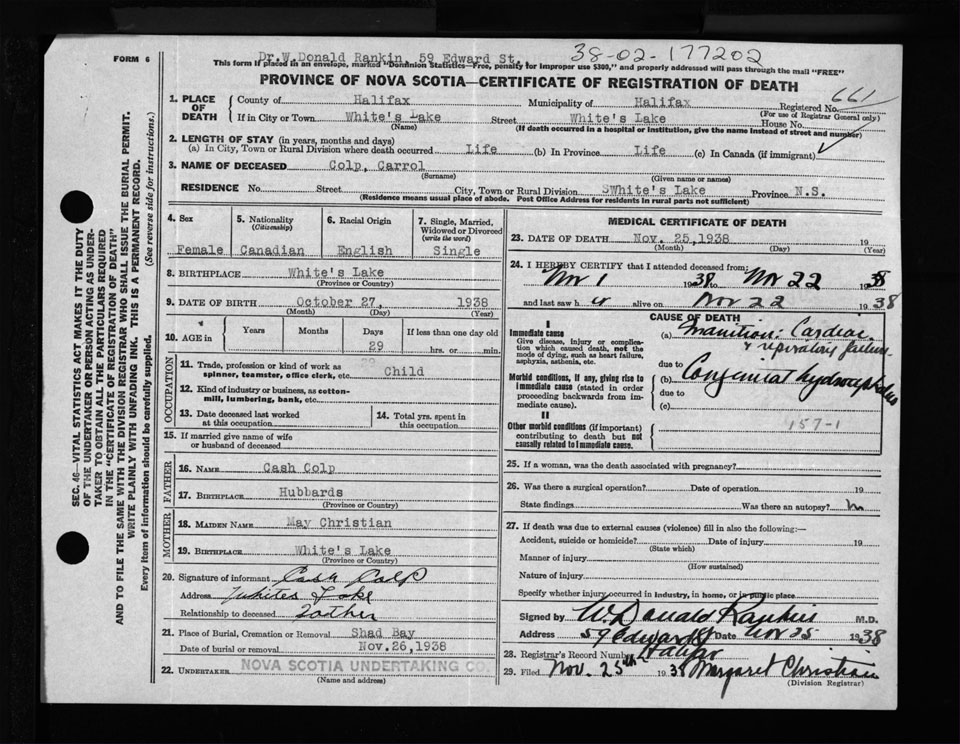 FORM 6
Dr. W. Donald Rankin, 59 Edward St. 38-02-177202
This form if placed in an envelope, marked "Dominion Statistics—Free, penalty for improper use $300," and properly addressed will pass through the mail "FREE"
PROVINCE OF NOVA SCOTIA—CERTIFICATE OF REGISTRATION OF DEATH
661
1. PLACE OF DEATH
County of Halifax Municipality of Halifax Registered No.
(For use of Registrar General only)
If in City or Town White's Lake Street White's Lake House No.
(Name) (If death occurred in a hospital or institution, give the name instead of street and number)
2. LENGTH OF STAY (in years, months and days)
(a) In City, Town or Rural Division where death occurred Life (b) In Province Life (c) In Canada (if immigrant)
3. NAME OF DECEASED Colp, Carrol
(Surname) (Given name or names)
RESIDENCE No. Street City, Town or Rural Division SWhite's Lake Province N.S.
(Residence means usual place of abode. Post Office Address for residents in rural parts not sufficient)
4. Sex Female
5. Nationality (Citizenship) Canadian
6. Racial Origin English
7. Single, Married, Widowed or Divorced (write the word) Single
8. BIRTHPLACE White's Lake
(Province or Country)
9. DATE OF BIRTH October 27, 1938
(Month) (Day) (Year)
10. AGE in Years Months Days If less than one day old
29 hrs. or min.
OCCUPATION
11. Trade, profession or kind of work as spinner, teamster, office clerk, etc. Child
12. Kind of industry or business, as cotton-mill, lumbering, bank, etc.
13. Date deceased last worked at this occupation
14. Total yrs. spent in this occupation
15. If married give name of wife or husband of deceased
FATHER
16. NAME Cash Colp
17. BIRTHPLACE Hubbards
(Province or Country)
MOTHER
18. MAIDEN NAME May Christian
19. BIRTHPLACE White's Lake
(Province or Country)
20. Signature of informant Cash Colp
Address Whites Lake
Relationship to deceased Father
21. Place of Burial, Cremation or Removal Shad Bay
Date of burial or removal Nov.26,1938
22. UNDERTAKER NOVA SCOTIA UNDERTAKING CO.
(Name and address)
MEDICAL CERTIFICATE OF DEATH
23. DATE OF DEATH Nov. 25,1938 19
(Month) (Day) (Year)
24. I HEREBY CERTIFY that I attended deceased from:
Nov 1 1938 to Nov 22 1938
and last saw h er alive on Nov 22 1938
CAUSE OF DEATH
I
Immediate cause
Give disease, injury or complication which caused death, not the mode of dying, such as heart failure, asphyxia, asthenia, etc.
(a) Inanition: Cardiac & respiratory failure
due to
Morbid conditions, if any, giving rise to immediate cause (stated in order proceeding backwards from immediate cause).
(b) Congenital hydrocephalus
due to
(c)
II
Other morbid conditions (if important) contributing to death but not causally related to immediate cause.
157-1
25. If a woman, was the death associated with pregnancy?
26. Was there a surgical operation? Date of operation 19
State findings Was there an autopsy?
27. If death was due to external causes (violence) fill in also the following:—
Accident, suicide or homicide? Date of injury 19
(State which)
Manner of injury
(How sustained)
Nature of injury
Specify whether injury occurred in industry, in home, or in public place
Signed by W. Donald Rankin M.D.
Address 59 Edward St Date Nov 25 1938
Halifax
28. Registrar's Record Number
29. Filed Nov. 25th 1938 Margaret Christian
(Division Registrar)
SEC. 46—VITAL STATISTICS ACT MAKES IT THE DUTY
OF THE UNDERTAKER OR PERSON ACTING AS UNDER-
TAKER TO OBTAIN ALL THE PARTICULARS REQUIRED
IN THE "CERTIFICATE OF REGISTRATION OF DEATH"
AND TO FILE THE SAME WITH THE DIVISION REGISTRAR WHO SHALL ISSUE THE BURIAL PERMIT.
WRITE PLAINLY WITH UNFADING INK. THIS IS A PERMANENT RECORD.
Every item of information should be carefully supplied. (See reverse side for instructions.)